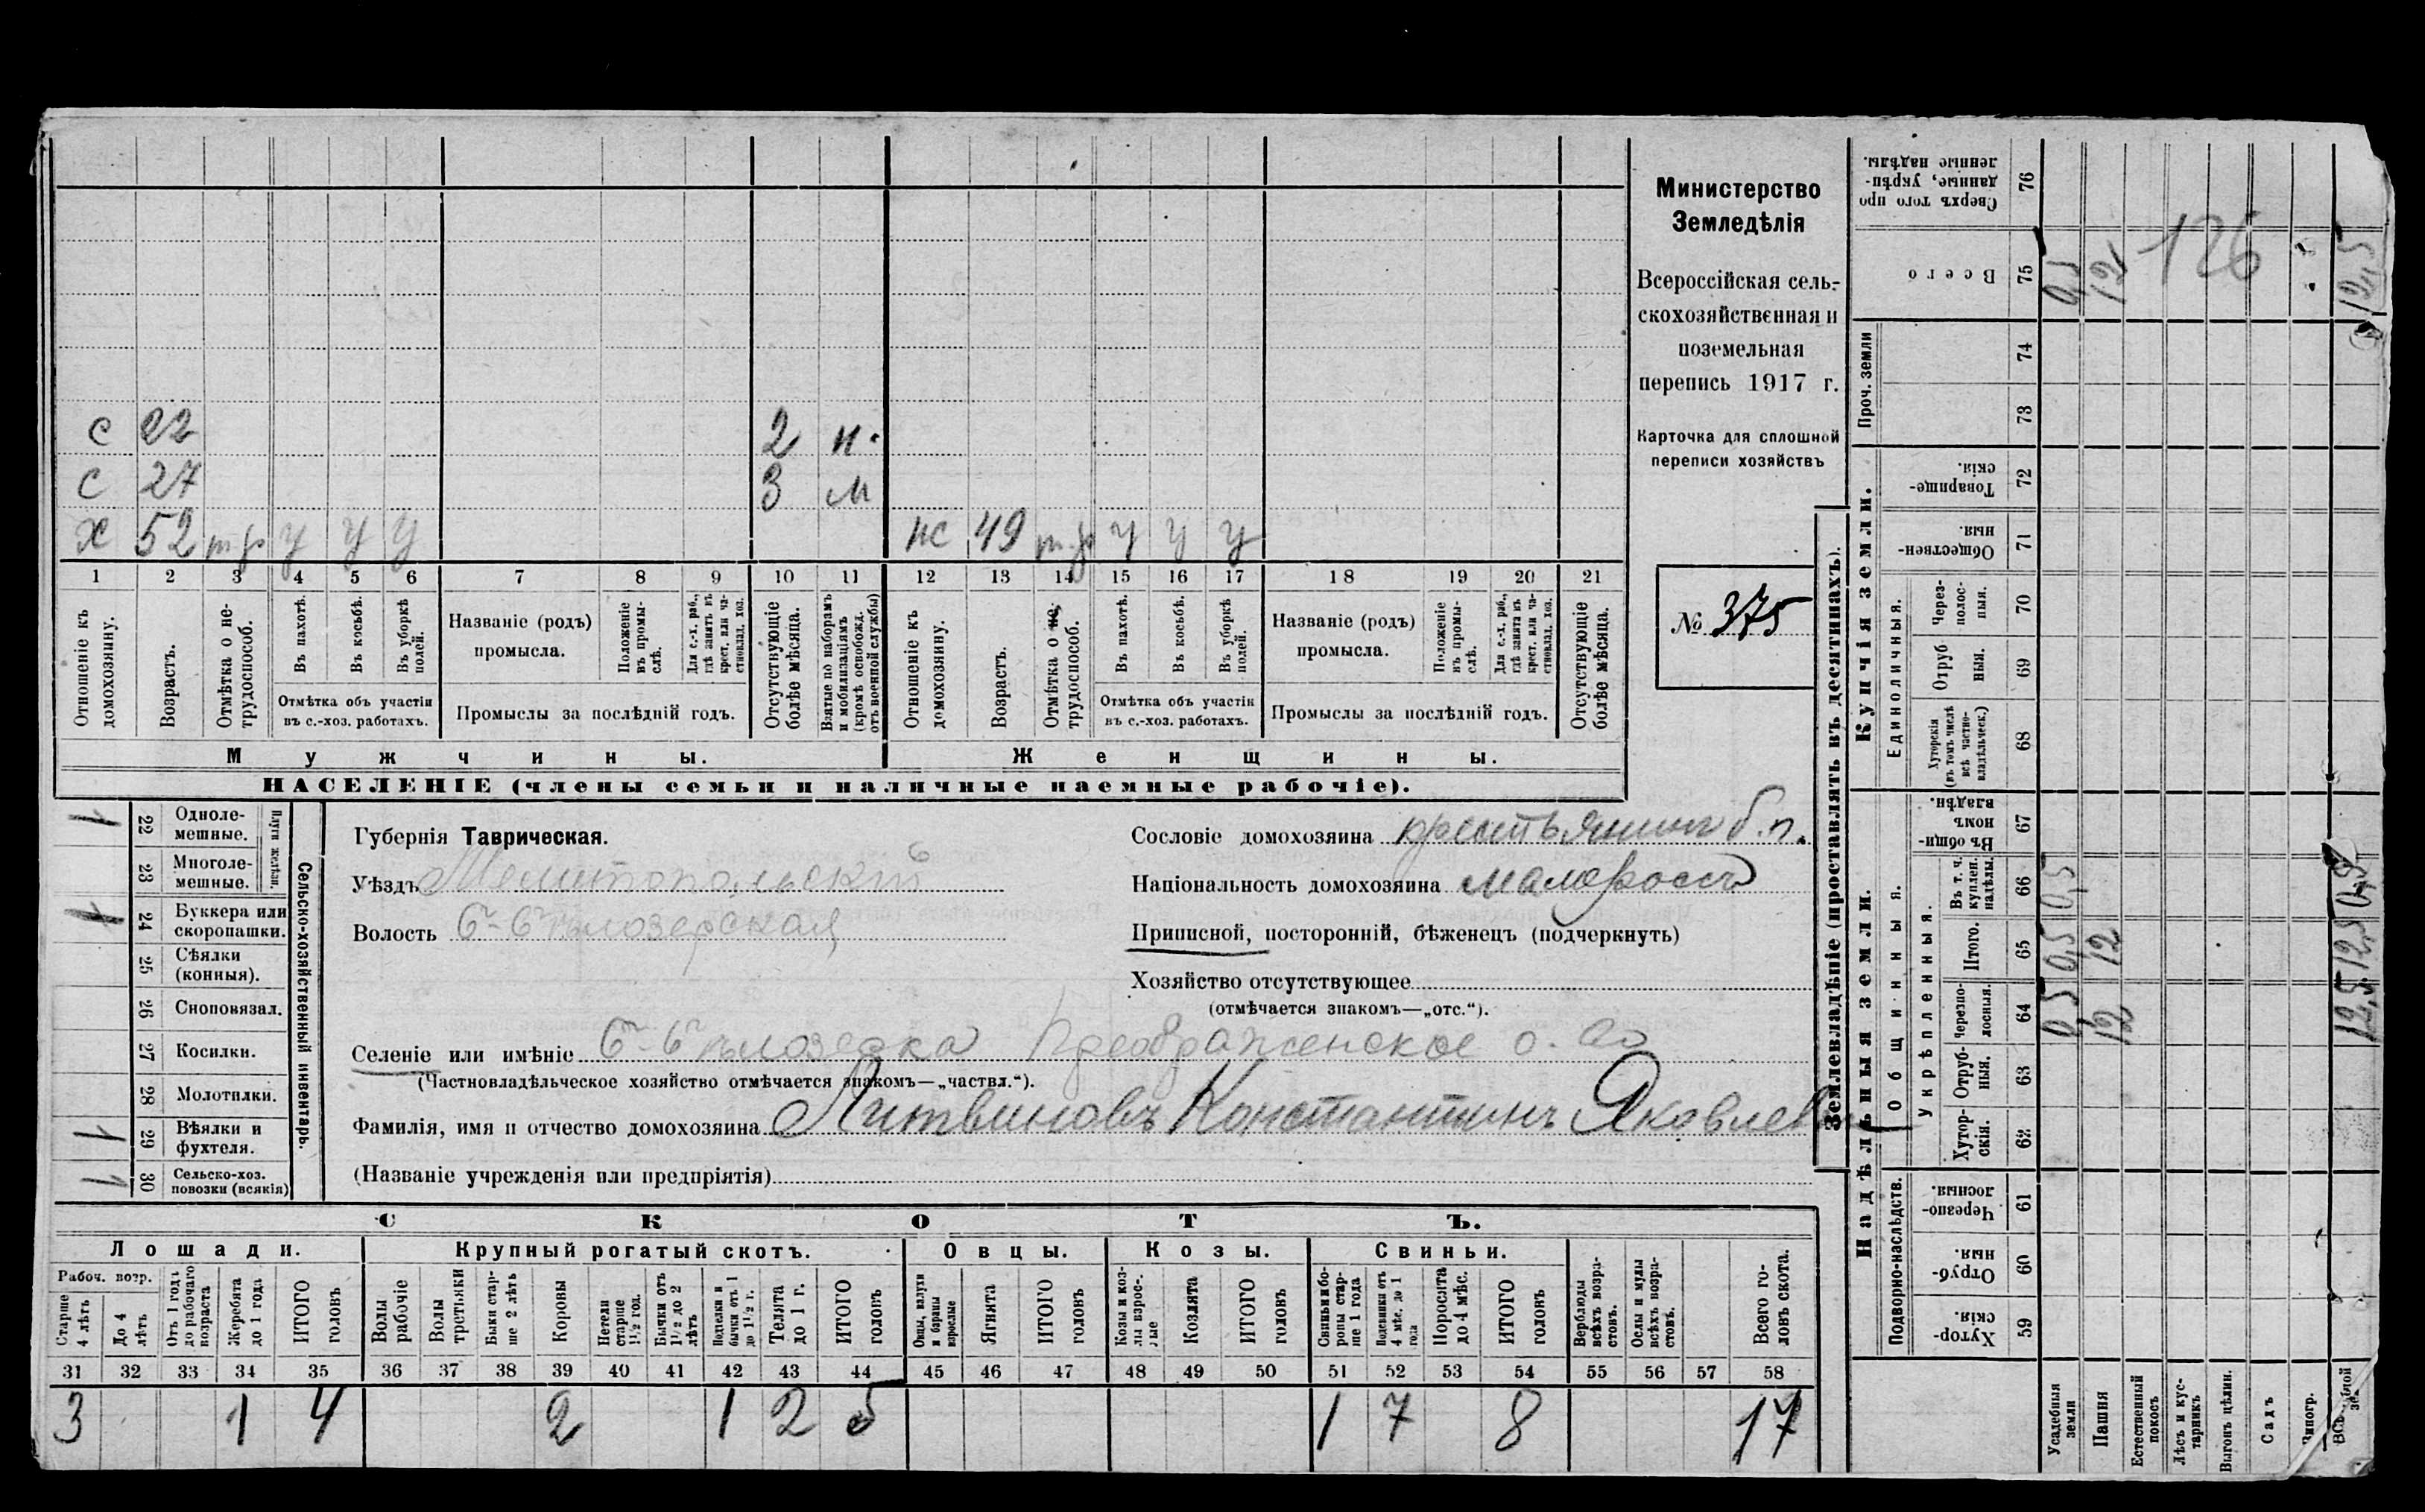 с 22 2 н.
с 27 3 м
х 52 тр у у у жс 49 тр у у у
1 2 3 4 5 6 7 8 9 10 11 12 13 14 15 16 17 18 19 20 21
Отношеніе къ домохозяину.
Возрастъ.
Отмѣтка о не-трудоспособ.
Въ пахотѣ.
Въ косьбѣ.
Въ уборкѣ полей.
Отмѣтка объ участіи
въ с.-хоз. работахъ.
Названіе (родъ)
промысла.
Положеніе въ промы-слѣ.
Для с.-х. раб., гдѣ занятъ въ крест. или ча-стновлад. хоз.
Промыслы за послѣдній годъ.
Отсутствующіе болѣе мѣсяца.
Взятые по наборамъ и мобилизаціямъ (кромѣ освобожд. отъ военной службы)
Отношеніе къ домохозяину.
Возрастъ.
Отмѣтка о не-трудоспособ.
Въ пахотѣ.
Въ косьбѣ.
Въ уборкѣ полей.
Отмѣтка объ участіи
въ с.-хоз. работахъ.
Названіе (родъ)
промысла.
Положеніе въ промы-слѣ.
Для с.-х. раб., гдѣ занята въ крест. или ча-стновлад. хоз.
Промыслы за послѣдній годъ.
Отсутствующіе болѣе мѣсяца.
Мужчины. Женщины.
НАСЕЛЕНІЕ (члены семьи и наличные наемные рабочіе).
Министерство
Земледѣлія
Всероссійская сель-
скохозяйственная и
поземельная
перепись 1917 г.
Карточка для сплошной
переписи хозяйствъ
№ 375
1 22 Одноле-мешные.
23 Многоле-мешные.
Плуги желѣзн.
1 24 Буккера или скоропашки.
25 Сѣялки (конныя).
26 Сноповязал.
27 Косилки.
28 Молотилки.
1 29 Вѣялки и фухтеля.
1 30 Сельско-хоз. повозки (всякія)
Сельско-хозяйственный инвентарь.
Губернія Таврическая.
Уѣздъ Мелитопольскій
Волость Б-Бѣлозерская
Сословіе домохозяина крестьянинъ б.п.
Національность домохозяина малороссъ
Приписной, посторонній, бѣженецъ (подчеркнуть)
Хозяйство отсутствующее
(отмѣчается знакомъ—„отс.“).
Селеніе или имѣніе Б-Бѣлозерка Преображенское о-во
(Частновладѣльческое хозяйство отмѣчается знакомъ—„частвл.“).
Фамилія, имя и отчество домохозяина Литвиновъ Константинъ Яковлев
(Названіе учрежденія или предпріятія)
СКОТЪ.
Лошади. Крупный рогатый скотъ. Овцы. Козы. Свиньи.
Рабоч. возр.
Старше 4 лѣтъ
До 4 лѣтъ
Отъ 1 года до рабочаго возраста
Жеребята до 1 года
ИТОГО головъ
Волы рабочіе
Волы третьяки
Быки стар-ше 2 лѣтъ
Коровы
Нетели старше 1½ год.
Бычки отъ 1½ до 2 лѣтъ
Подтелки и бычки отъ 1 до 1½ г.
Телята до 1 г.
ИТОГО головъ
Овцы, валухи и бараны взрослые
Ягнята
ИТОГО головъ
Козы и коз-лы взрос-лые
Козлята
ИТОГО головъ
Свиньи и бо-ровы стар-ше 1 года
Подсвинки отъ 4 мѣс. до 1 года
Поросята до 4 мѣс.
ИТОГО головъ
Верблюды всѣхъ возра-стовъ.
Ослы и мулы всѣхъ возра-стовъ.
Всего го-ловъ скота.
31 32 33 34 35 36 37 38 39 40 41 42 43 44 45 46 47 48 49 50 51 52 53 54 55 56 57 58
3 1 4 2 1 2 5 1 7 8 17
Землевладѣніе (проставлять въ десятинахъ).
Надѣльныя земли. Купчія земли. Проч. земли
Подворно-наслѣдств.
Общинныя.
Укрѣпленныя.
Единоличныя.
Хутор-скія. 59
Отруб-ныя. 60
Черезпо-лосныя. 61
Хутор-скія. 62
Отруб-ныя. 63
Черезпо-лосныя. 64
Итого. 65
Въ т. ч. куплен. надѣлы. 66
Въ общи-номъ владѣн. 67
Хуторскія (въ томъ числѣ всѣ частно-владѣльческ.) 68
Отруб-ныя. 69
Через-полос-ныя. 70
Обществен-ныя. 71
Товарище-скія. 72
73
74
Всего 75
Сверхъ того про-данные, укрѣп-ленные надѣлы. 76
Усадебныя земли 0,5 0,5 0,5 0,5
Пашня 12 12 12
Естественный покосъ
Лѣсъ и кус-тарникъ
Выгонъ цѣлин.
Садъ
Виногр.
12,5 12,5 0,5 12,5
126